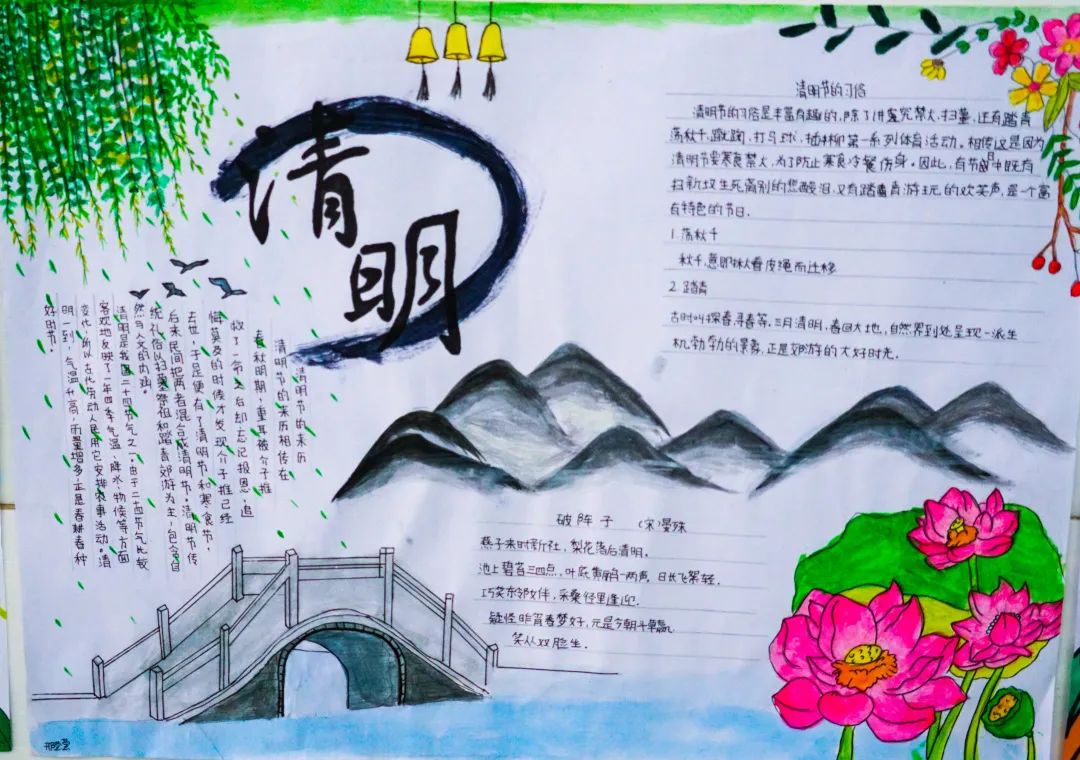 清明
清明节的习俗
清明节的习俗是丰富有趣的,除了讲究禁火、扫墓,还有踏青
荡秋千、蹴鞠、打马球、插柳第一系列体育活动。相传这是因为
清明节要寒食禁火,为了防止寒食冷餐伤身。因此,有节日中既有
扫新坟生死离别的悲酸泪,又有踏青游玩的欢笑声,是一个富
有特色的节日.
1.荡秋千
秋千,意即揪着皮绳而迁移
2.踏青
古时叫探春寻春等,三月清明,春回大地,自然界到处呈现一派生
机勃勃的景象,正是郊游的大好时光.
清明节的来历
清明节的来历相传在
春秋明期,重耳被介子推
救了一命之后却忘记报恩,追
悔莫及的时候才发现介子推已经
去世,于是便有了清明节和寒食节,
后来民间把两者混合成清明节。清明节传
统礼俗以扫墓祭祖和踏青郊游为主,包含自
然与人文的内涵。
清明是我国二十四节气之一由于二十四节气比较
客观地反映了一年四季气温、降水、物候等方面
变化,所以古代劳动人民用它安排农事活动。清
明一到,气温升高,雨量增多,正是春耕春种
好时节。
破阵子 (宋)晏殊
燕子来时新社,梨花落后清明。
池上碧苔三四点,叶底黄鹂一两声。日长飞絮轻.
巧笑东邻女伴,采桑径里逢迎.
疑怪昨宵春梦好,元是今朝斗草赢.
笑从双脸生.